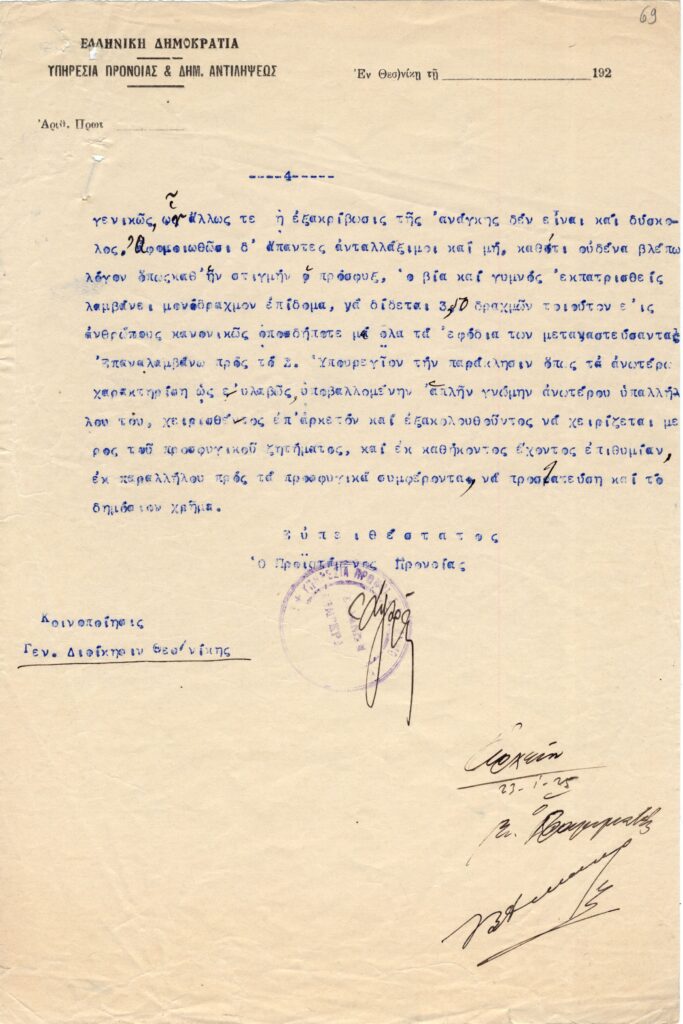 69
ΕΛΛΗΝΙΚΗ ΔΗΜΟΚΡΑΤΙΑ
ΥΠΗΡΕΣΙΑ ΠΡΟΝΟΙΑΣ & ΔΗΜ. ΑΝΤΙΛΗΨΕΩΣ
Ἐν Θεσ)νίκῃ τῇ 192
Ἀριθ. Πρωτ
----4-----
γενικῶς, ἄλλως τε ἡ ἐξακρίβωσις τῆς ἀνάγκης δέν εἶναι καί δύσκο-
λος. ἀφομοιωθῶσι δ' ἅπαντες ἀνταλλάξιμοι καί μή, καθότι οὐδένα βλέπω
λόγον ὅπως καθ' ἥν στιγμήν ὁ πρόσφυξ, ὁ βίᾳ καί γυμνός ἐκπατρισθείς
λαμβάνει μονόδραχμον ἐπίδομα, νά δίδεται 3,50 δραχμῶν τοιοῦτον εἰς
ἀνθρώπους κανονικῶς ὁπωσδήποτε μέ ὅλα τά ἐφόδια των μεταναστεύσαντας
Ἐπαναλαμβάνω πρός τό Σ. Ὑπουργεῖον τήν παράκλησιν ὅπως τά ἀνωτέρω
χαρακτηρίσῃ ὡς εὐλαβῶς, ὑποβαλλομένην ἁπλῆν γνώμην ἀνωτέρου ὑπαλλή-
λου του, χειρισθέντος ἐπ' ἀρκετόν καί ἐξακολουθοῦντος νά χειρίζεται με
ρος τοῦ προσφυγικοῦ ζητήματος, καί ἐκ καθήκοντος ἔχοντος ἐπιθυμίαν,
ἐκ παραλλήλου πρός τά προσφυγικά συμφέροντα, νά προστατεύσῃ καί τό
δημόσιον χρῆμα.
Εὐπειθέστατος
Ὁ Προϊστάμενος Προνοίας
ΥΠΗΡΕΣΙΑ
Κοινοποίησις
Γεν. Διοίκησιν Θεσ/νίκης
Ἀρχεῖον
23-1-25